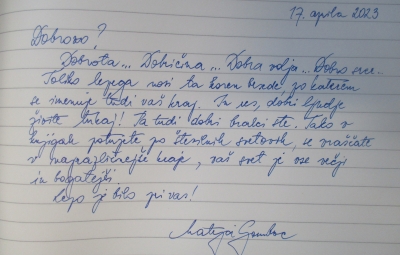 17. aprila 2023
Dobrovo?
Dobrota... Dobričina... Dobra volja... Dobro srce...
Toliko lepega nosi ta koren besede, po katerem
se imenuje tudi vaš kraj. In res, dobri ljudje
živite tukaj! Pa tudi dobri bralci ste. Tako v
knjigah potujete po številnih svetovih, se vračate
v najrazličnejše kraje, vaš svet je vse večji
in bogatejši.
Lepo je bilo pri vas!